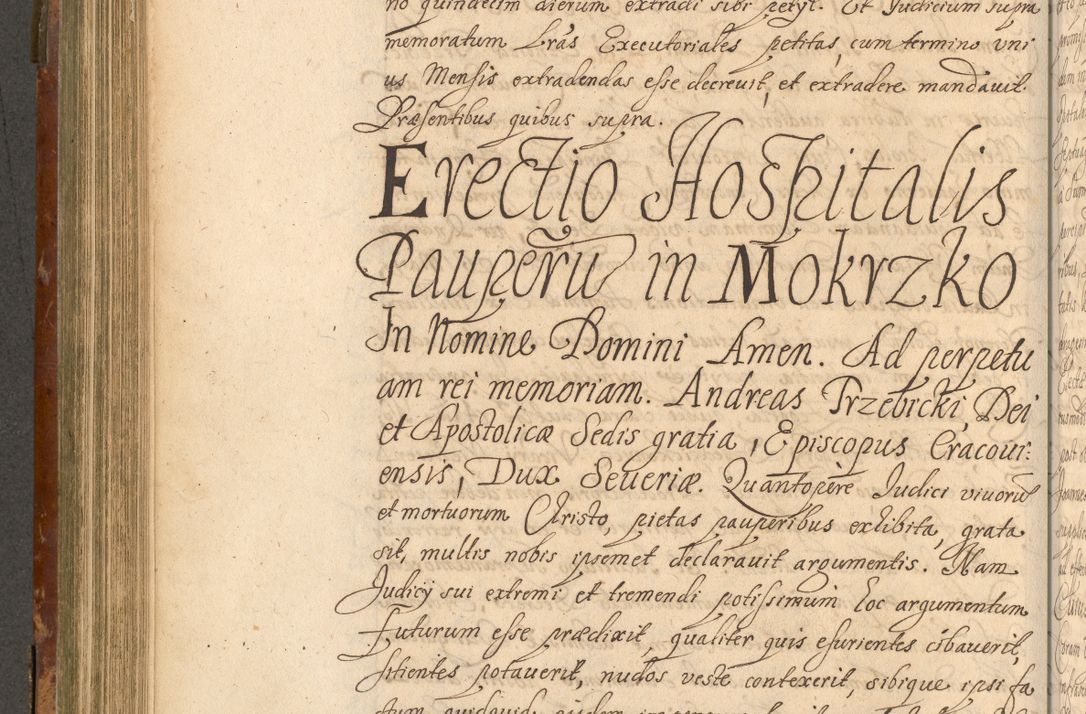 no quindecim dierum extradi sibi petyt. Et Judicium supra
memoratum Lrãs Executoriales petitas, cum termino vni
us Mensis extradendas esse decreuit, et extradere mandauit.
Præsentibus quibus supra.
Erectio Hospitalis
Pauperũ in Mokrzko
In Nomine Domini Amen. Ad perpetu
am rei memoriam. Andreas Trzebicki, Dei
et Apostolicæ Sedis gratia, Episcopus Cracoui:
ensis, Dux Seueriæ. Quantopere Judici viuorũ
et mortuorum Christo, pietas pauperibus exhibita, grata
sit, multis nobis ipsemet declarauit argumentis. Nam
Judicij sui extremi et tremendi potissimum hoc argumentum
Futurum esse prædixit, qualiter quis esurientes cibauerit,
sitientes potauerit, nudos veste contexerit, sibique ipsi fa
ctum quidquid eidem